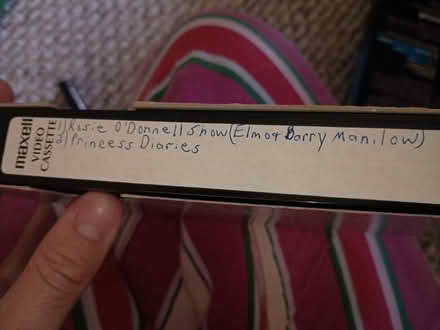 maxell
VIDEO
CASSETTE
1) Rosie O'Donnell Show (Elmo & Barry Manilow)
2) Princess Diaries